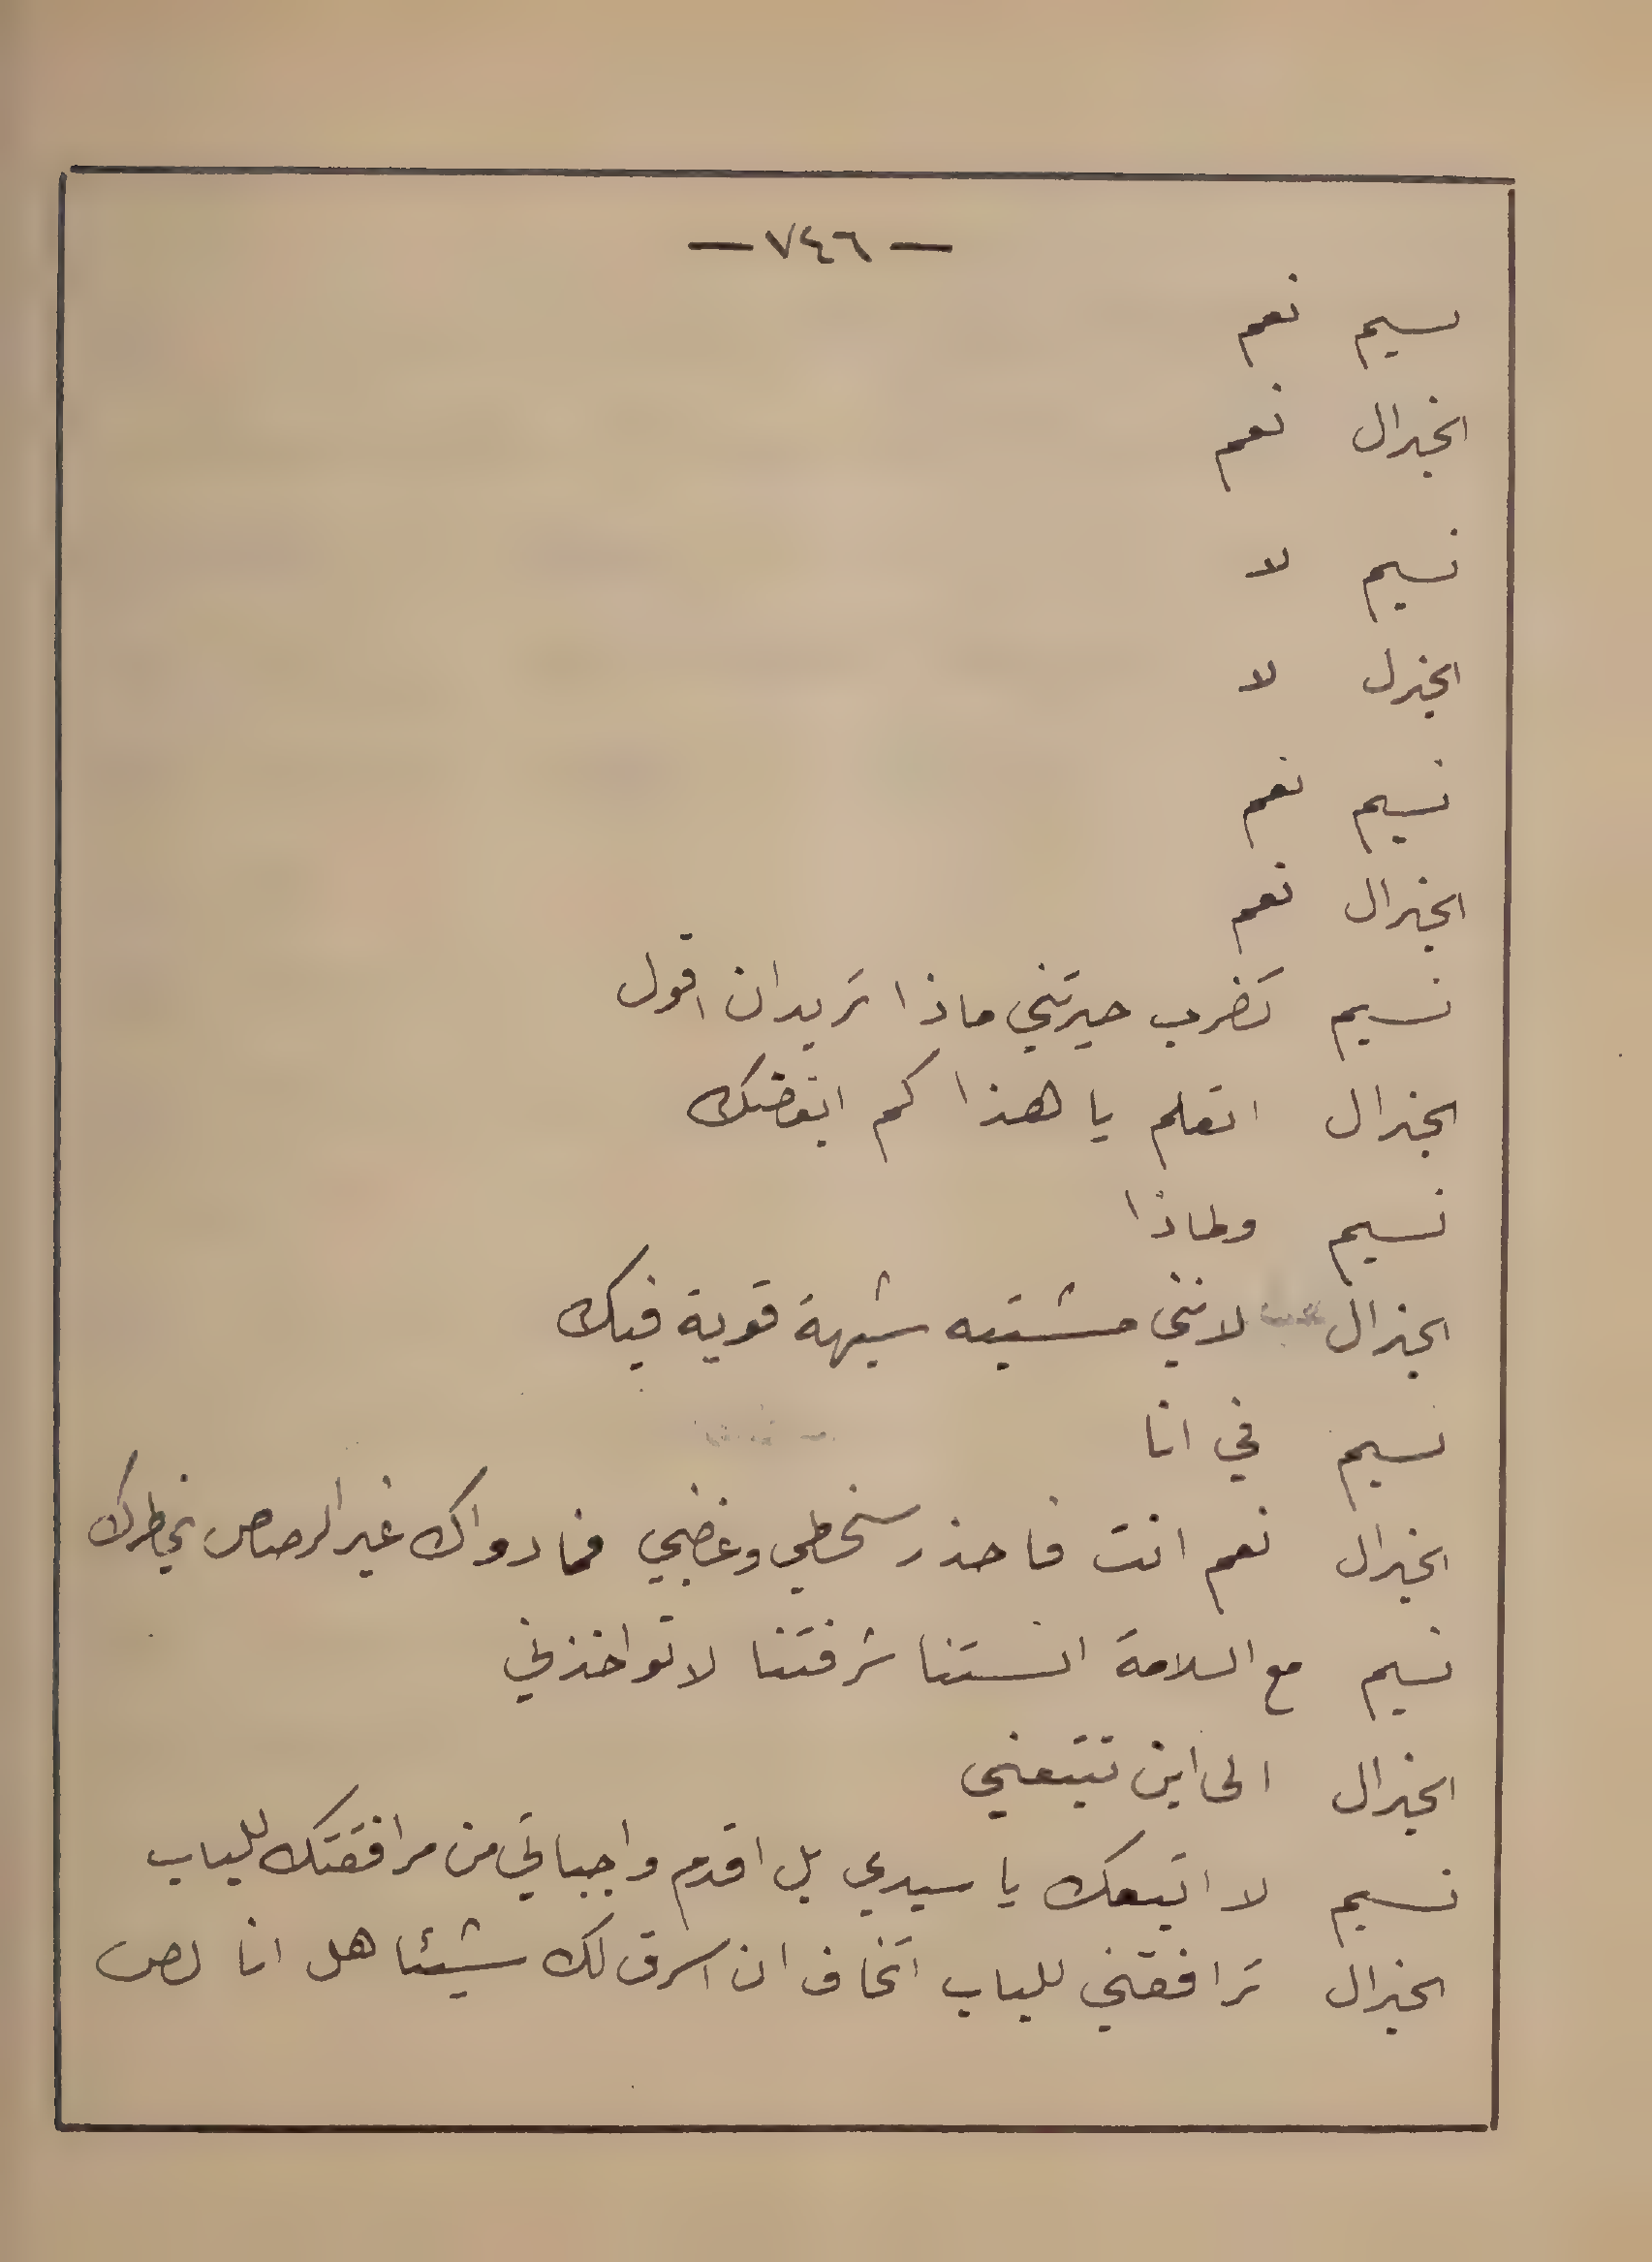 — ٧٤٦ —
نسيم نعم
الجنرال نعم
نسيم لا
الجنرل لا
نسيم نعم
الجنرال نعم
نسيم تضرب حيرتني ماذا تريد ان اقول
الجنرال اتعلم يا هذا كم ابغضك
نسيم ولماذا
الجنرال لانني مشتبه شبهة قوية فيك
نسيم في انا
الجنرال نعم انت فاحذر سخطي وغضبي فما دواك غير الرصاص يخطرك
نسيم مع السلامة انستنا شرفتنا لا تواخذني
الجنرال الى اين تتبعني
نسيم لا اتبعك يا سيدي بل اقدم واجباتي من مرافقتك للباب
الجنرال ترافقني للباب اتخاف ان اسرق لك شيئا هل انا لص